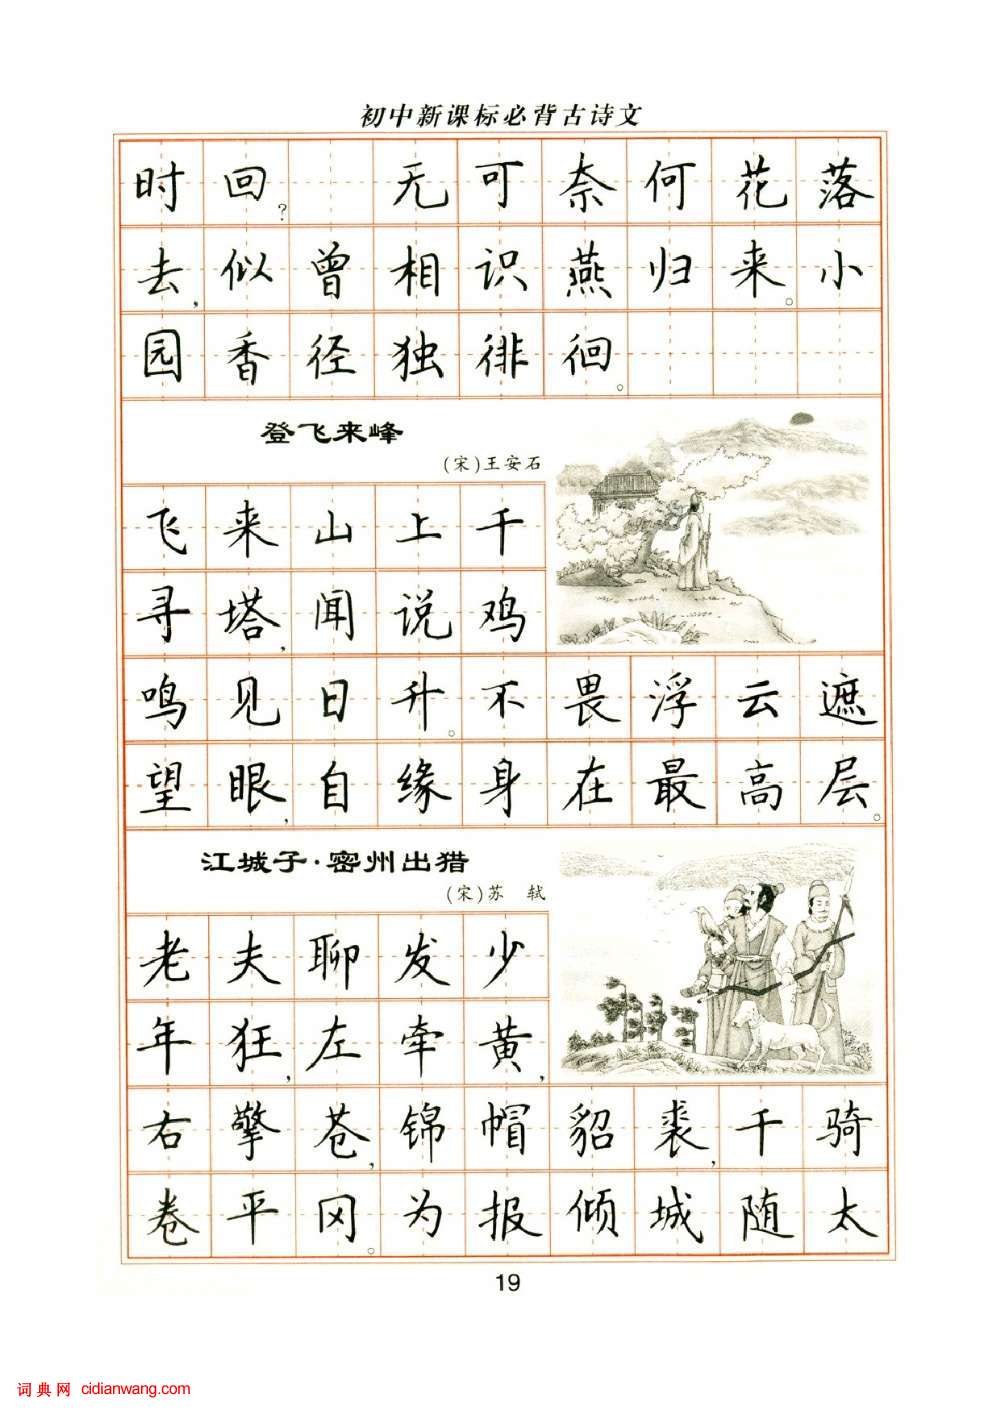 初中新课标必背古诗文
时回? 无可奈何花落
去,似曾相识燕归来。小
园香径独徘徊。
登飞来峰
(宋)王安石
飞来山上千
寻塔,闻说鸡
鸣见日升。不畏浮云遮
望眼,自缘身在最高层。
江城子·密州出猎
(宋)苏 轼
老夫聊发少
年狂,左牵黄,
右擎苍,锦帽貂裘,千骑
卷平冈。为报倾城随太
19
词典网 cidianwang.com